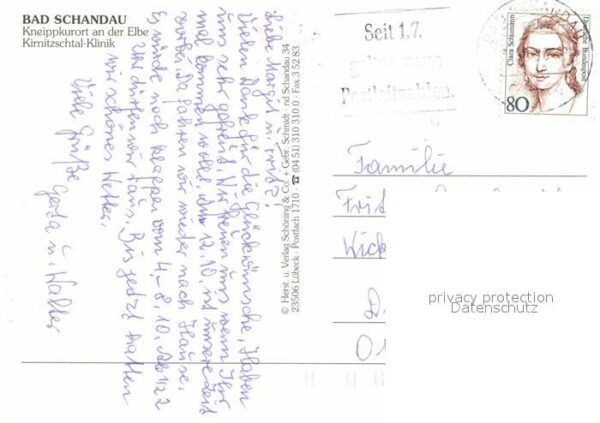 BAD SCHANDAU
Kneippkurort an der Elbe
Kirnitzschtal-Klinik
Liebe Margit u. Fritz!
Vielen Dank für die Glückwünsche. Haben
uns sehr gefreut. Wir freuen uns wenn Ihr
mal kommen wollt. Am 12.10. ist unsere Zeit
vorbei. Da fahren wir wieder nach Hause.
Es würde noch klappen vom 4.-8.10. Ab
und dürfen wir raus. Bis jetzt hatten
wir schönes Wetter.
Viele Grüße
Gerda u. Walter
© Herst. u. Verlag Schöning & Co. + Gebr. Schmidt · Bad Schandau 34
23506 Lübeck - Postfach 1710 · ☎ (04 51) 310 310 0 · Fax 3 52 83
Seit 1.7.
gelten neue
Postleitzahlen.
SCHANDAU
Deutsche Bundespost
Clara Schumann
80
Familie
Frid
Wick
privacy protection
Datenschutz